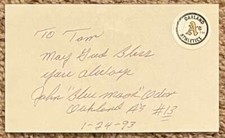 OAKLAND
A's
ATHLETICS
To Tom
May God Bless
you always
John "Blue Moon" Odom
Oakland A's #13
1-24-93